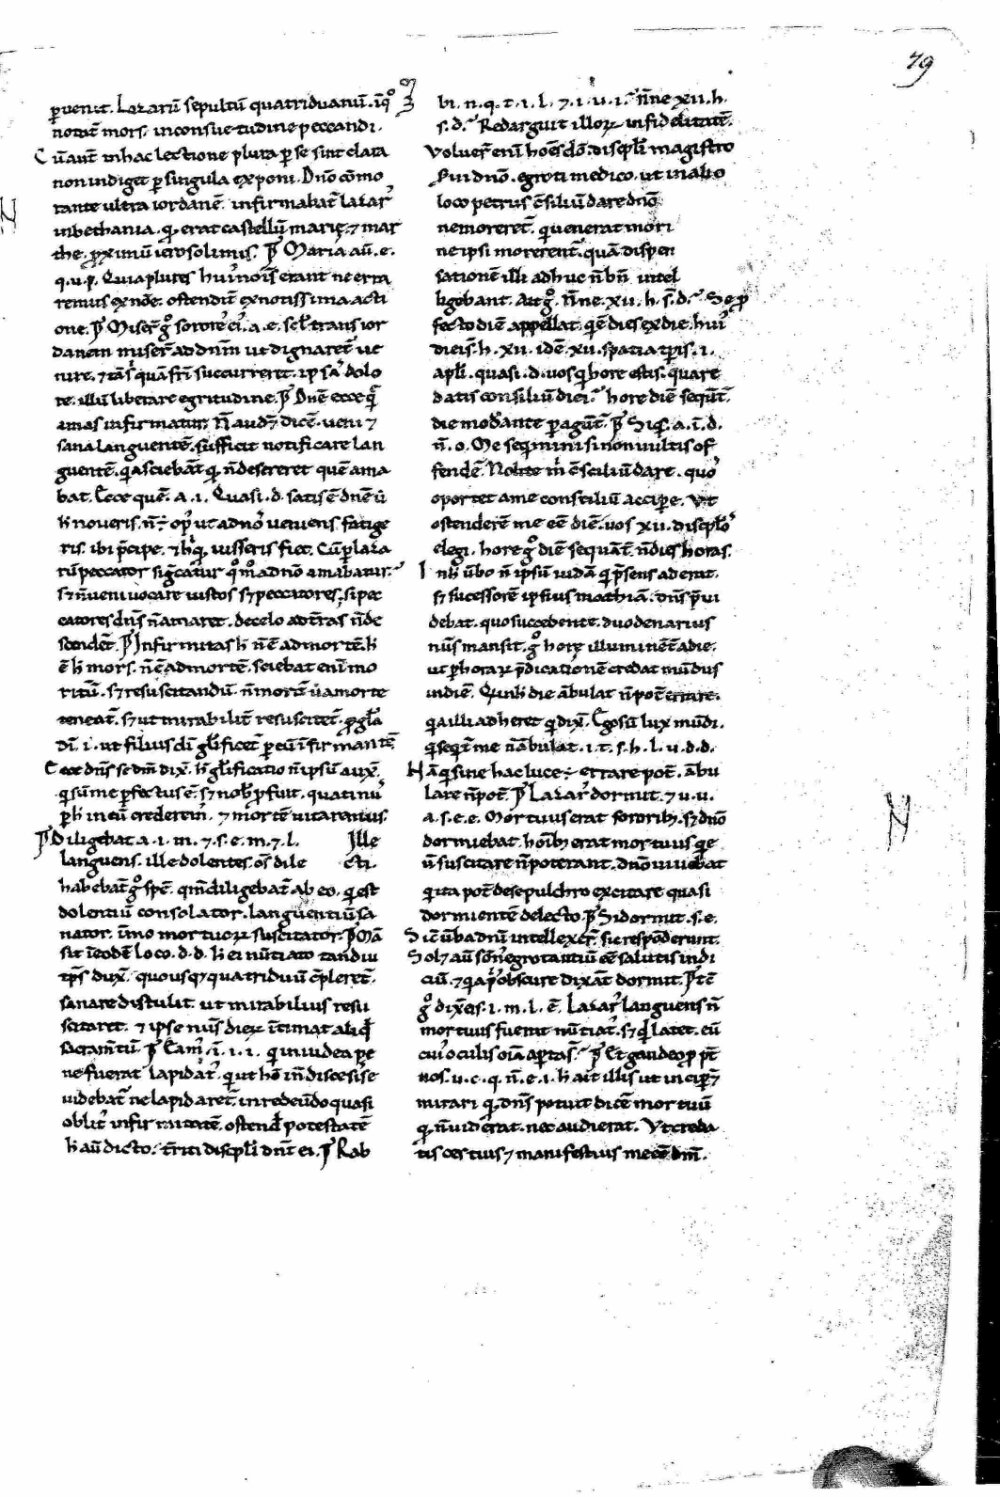 79
puenit. Lazarū sepultū quatriduanū. iq̊
notat̄ mors. inconsuetudine peccandi.
Cū aut̄ in hac lectione plura p se sint clara
non indiget p singula exponi. Dn̄o cōmo
rante ultra iordanē. infirmabat̄ lazar᷒
inbethania. q̨ erat castellū marię ⁊ mar
the. proximū ierosolimis. Maria aū. e.
q. u. p. Quia plures hui᷒ nois̄ erant ne erra
remus ex noīe. ostendit̄ ex notissima acti
one. Miser̄ g̊ sorores ei᷒. a. e. scl̄ trans ior
danem miser̄ ad dn̄m ut dignaret̄ ue
nire. ⁊ eas quā fr̄i succurreret. ipsā dolo
re. illū liberare egritudine. Dn̄e ecce q̄
amas infirmatur. N̄ aud dicē. ueni ⁊
sana languentē. sufficit notificare lan
guentē. q̨a sciebāt q̨ n̄ desereret quē ama
bat. Ecce quē. a. i. Quasi. d. satis ē dn̄e ū
h̄ noueris. n̄ op᷒ ut ad nos ueniens fatige
ris. ibi p̄cipe. ⁊ h̄ q̨ iusseris fiet. Cū p laza
rū peccator sig̅catur q̊m̊ a dn̄o amabatur.
S; n̄ ueni uocare iustos s; peccatores. si pec
catores dn̄s n̄ amaret. de celo ad t̄ras n̄ de
scendēt. Infirmitas h̄ n̄ ē ad mortē. h̄
ē h̄ mors. n̄ ē ad mortē. sciebat enī mo
ritū. s; resuscitandū. n̄ morte ū a morte
teneāt. s; ut mirabilit̄ resuscitet̄ p gl̄a
dī. i. ut filius dī gl̄ificet̄ p eū īfirmantē
Ecce dn̄s se dm̄ dix̄. h̄ gl̄ificatio n̄ ipsū aux̄.
q̨ sūme pfectus ē. s; nob᷒ pfuit. quatin᷒
p h̄ in eū crederem᷒. ⁊ mortē uitarem᷒.
Diligebat a. i. m. ⁊. s. e. m. ⁊. l. Ille
languens. ille dolentes. os̄ dile cti
habebat̄ g̊ spē. qm̄ diligebat̄ ab eo. q̨ est
dolentiū consolator. languentiū sa
nator. īmo mortuo᷒ suscitator. Mā
sit īeodē loco. d. d. h̄ ei nūtiato tandiu
tps̄ dux̄. quousq̨ quatriduū c̄pleret̄.
sanare distulit. ut mirabilius resu
scitaret. ⁊ ipse num᷒ die᷒ ītimat aliq̄
sacram̄tū. Eam᷒. ī. i. i. q̨ in iudea pe
ne fuerat lapidat᷒. q̨ ut hō in̄ discesisse
uidebat̄ ne lapidaret̄. in redeūdo quasi
oblit᷒ infirmitatē. ostend̄ potestatē
h̄ aū dicto. t̄riti discpli dnt̄ ei. Rab
bi. n. q. t. i. l. ⁊. i. u. i. n̄ne xii. h.
s. d. Redarguit illo᷒ infidelitatē.
Voluer̄ enī hoēs dō. discpl̄i magistro
serui dn̄o. egroti medico. ut in alio
loco petrus cōsiliū dare dn̄o
ne moreret̄. qui uenerat mori
ne ipsi morerent̄. quā dispen
sationē illi adhuc n̄ bn̄ intel
ligebant. Ait g̊. n̄ne. xii. h. s. d. Se p
fecto diē appellat. quē dies ex die hui᷒
diei s̄. h. xii. idē. xii. spatia tp̄is. i.
apl̄i. quasi. d. uos q̨ hore estis. quare
datis consiliū diei. hore diē sequt̄.
die modante pagūt̄. Siq̨s. a. i. d.
n̄. o. Me seq̨mini si non uultis of
fendē. Nolite m̄ cōsciliū dare. quos
oportet a me consciliū accipe. Vt
ostenderē me eē diē. uos xii. discpl̄os
elegi. hore g̊ diē sequāt̄. n̄ dies horas.
In h̄ ūbo n̄ ipsū iudā q̨ p̄sens aderat.
s; sucessorē ipsius mathiā. dn̄s p̄ui
debat. quo succedente duodenarius
nūs mansit. g̊ horę illuminēt̄ a die.
ut p hora᷒ p̄dicationē credat mundus
in diē. Quih̄ die ābulat n̄ pot̄ errare.
q̨a illi adheret q̨ dix̄. Ego sū lux mūdi.
q̨ seq̨t̄ me n̄ ābulat. i. t. s. h. l. u. d. d.
Hāq̨ sine hac luce ÷ errare pot̄. ābu
lare n̄ pot̄. Lazar᷒ dormit. ⁊ u. u.
a. s. e. e. Mortuus erat sororib᷒. s; dn̄o
dormiebat. hoīb᷒ erat mortuus q̨ e
ū suscitare n̄ poterant. dn̄o uiuebat
q̨ ita pot̄ de sepulchro excitare quasi
dormientē de lecto. Si dormit. s. e.
Sic̄ ūba dn̄i intellexer̄. sic respōderunt.
Sol; aū sōn᷒ egrotantiū eē salutis indi
ciū. ⁊ q̨a p᷒ obscure dix̄at dormit. Tē
g̊ dix̄ eis. i. m. l. ē. Lazar᷒ languens n̄
mortuus fuerat nūtiat᷒. s; q̨d latet. eū
cui᷒ oculis oīa aptas̄. Et gaudeo p̄
nos. u. c. q. n̄. e. i. h̄ ait illis ut incip;
mirari q̨ dn̄s potuit dicē mortuū
q̨ n̄ uiderat. nec audierat. Vt creda
tis certius ⁊ manifestius me eē dm̄.